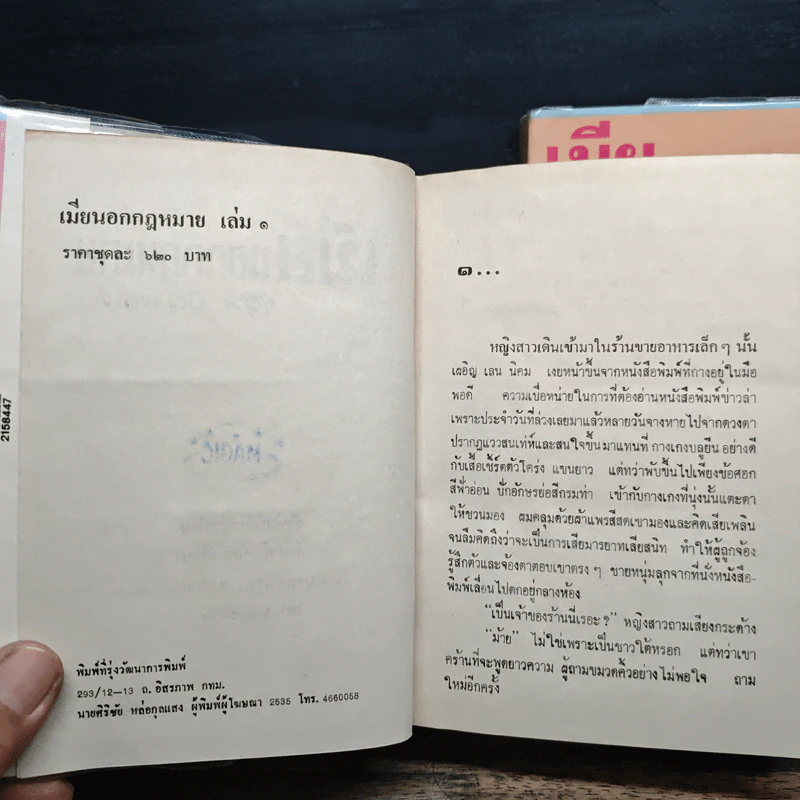 เมีย
เมียนอกกฎหมาย เล่ม ๑
ราคาชุดละ ๖๒๐ บาท
2158447
พิมพ์ที่รุ่งวัฒนาการพิมพ์
293/12-13 ถ. อิสรภาพ กทม.
นายศิริชัย หล่อกุลแสง ผู้พิมพ์ผู้โฆษณา 2535 โทร. 4660058
๑...
หญิงสาวเดินเข้ามาในร้านขายอาหารเล็ก ๆ นั้น
เผอิญ เลน นิคม เงยหน้าขึ้นจากหนังสือพิมพ์ที่กางอยู่ในมือ
พอดี ความเบื่อหน่ายในการที่ต้องอ่านหนังสือพิมพ์ข่าวล่า
เพราะประจำวันที่ล่วงเลยมาแล้วหลายวันจางหายไปจากดวงตา
ปรากฏแววสนเท่ห์และสนใจขึ้นมาแทนที่ กางเกงบลูยีน อย่างดี
กับเสื้อเชิ้ร์ตตัวโคร่ง แขนยาว แต่ทว่าพับขึ้นไปเพียงข้อศอก
สีฟ้าอ่อน ปักอักษรย่อสีกรมท่า เข้ากับกางเกงที่นุ่งนั้นแตะตา
ให้ชวนมอง ผมคลุมด้วยผ้าแพรสีสดเขามองและคิดเสียเพลิน
จนลืมคิดถึงว่าจะเป็นการเสียมารยาทเสียสนิท ทำให้ผู้ถูกจ้อง
รู้สึกตัวและจ้องตาตอบเขาตรง ๆ ชายหนุ่มลุกจากที่นั่งหนังสือ-
พิมพ์เลื่อนไปตกอยู่กลางห้อง
“เป็นเจ้าของร้านนี่เรอะ ?” หญิงสาวถามเสียงกระด้าง
“ม้าย” ไม่ใช่เพราะเป็นชาวใต้หรอก แต่ทว่าเขา
คร้านที่จะพูดยาวความ ผู้ถามขมวดคิ้วอย่างไม่พอใจ ถาม
ใหม่อีกครั้ง